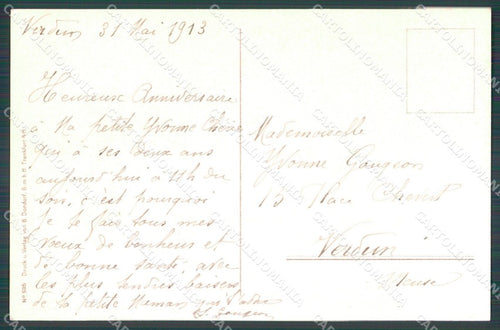 Verdun 31 Mai 1913
Heureux Anniversaire
à Ma petite Yvonne Chérie
qui à ses deux ans
aujourd'hui à 11h du
soir, c'est pourquoi
je te fais tous mes
Voeux de bonheur et
de bonne santé, avec
les plus tendres baisers
de ta petite Maman qui t'adore
Gougeon
Mademoiselle
Yvonne Gougeon
13 Place Chevert
Verdun
Meuse
Nº 595 Druck u. Verlag von B. Dondorf, G.m.b.H. Frankfurt a/M.
CARTOLINOMANIA